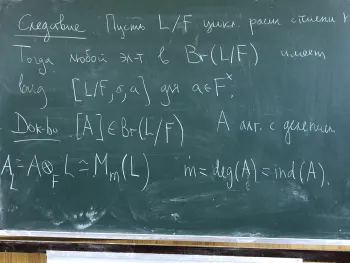 Следствие Пусть L/F цикл. расш степени n
Тогда любой эл-т в Br(L/F) имеет
вид [L/F, σ, a] для a∈F^×.
Док-во [A]∈Br(L/F) A алг. с делением
A_L = A⊗_F L ≃ M_m(L) m = deg(A) = ind(A).